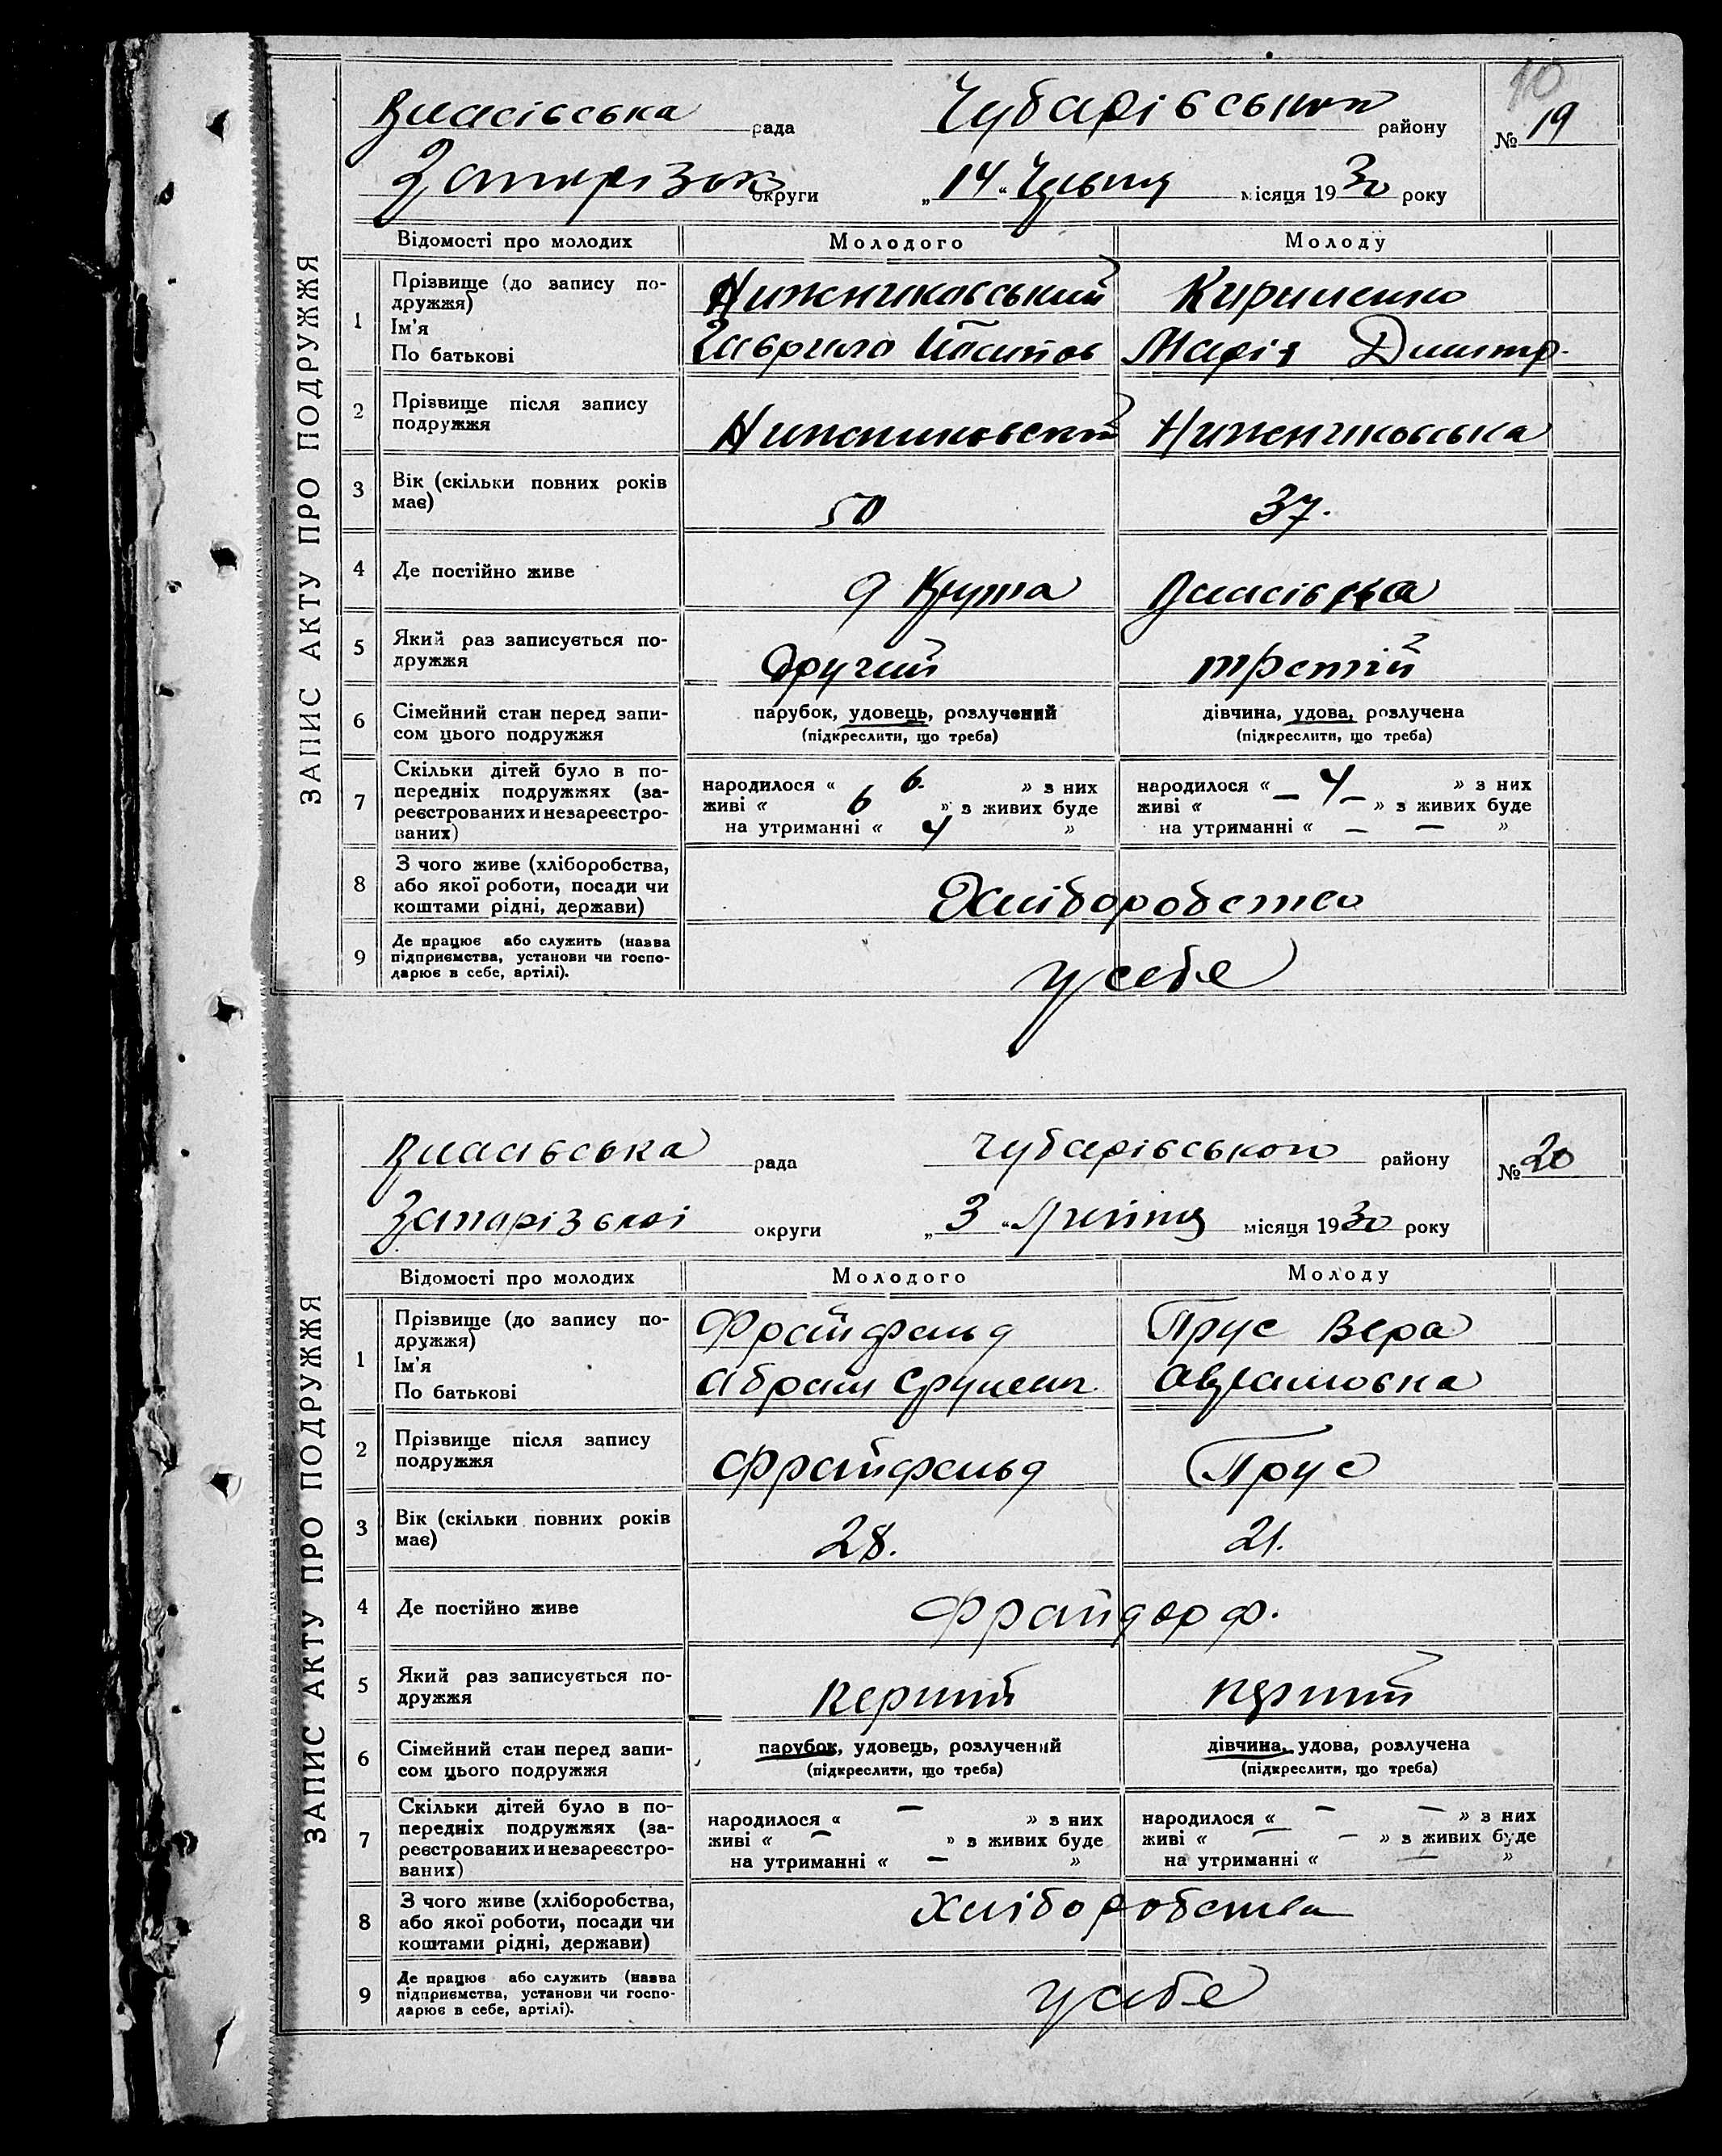 10
Власівська рада Чубарівського району № 19
Запорізьк округи „14“ Червня місяця 1930 року
ЗАПИС АКТУ ПРО ПОДРУЖЖЯ
Відомості про молодих Молодого Молоду
1 Прізвище (до запису по-
дружжя) Нижниковський Кириленко
Ім'я
По батькові Гаврило Марія Дмитр.
2 Прізвище після запису
подружжя Нижниковский Нижниковська
3 Вік (скільки повних років
має) 50 37.
4 Де постійно живе Власівка
5 Який раз записується по-
дружжя другий третій
6 Сімейний стан перед запи- парубок, удовець, розлучений дівчина, удова, розлучена
сом цього подружжя (підкреслити, що треба) (підкреслити, що треба)
7 Скільки дітей було в по- народилося « 6. » з них народилося « – 4 – » з них
передніх подружжях (за- живі « 6 » з живих буде живі « » з живих буде
реєстрованих и незареєстро- на утриманні « 4 » на утриманні « – – »
ваних)
8 З чого живе (хліборобства,
або якої роботи, посади чи Хліборобство
коштами рідні, держави)
9 Де працює або служить (назва
підприємства, установи чи госпо- у себе
дарює в себе, артілі).
Власівська рада Чубарівського району № 20
Запорізької округи „3“ Липня місяця 1930 року
ЗАПИС АКТУ ПРО ПОДРУЖЖЯ
Відомості про молодих Молодого Молоду
1 Прізвище (до запису по-
дружжя) Фрайфельд Прус Вера
Ім'я
По батькові Абрам Срулев Аврамовна
2 Прізвище після запису
подружжя Фрайфельд Прус
3 Вік (скільки повних років
має) 28. 21.
4 Де постійно живе Фрайдорф.
5 Який раз записується по-
дружжя перший перший
6 Сімейний стан перед запи- парубок, удовець, розлучений дівчина, удова, розлучена
сом цього подружжя (підкреслити, що треба) (підкреслити, що треба)
7 Скільки дітей було в по- народилося « – » з них народилося « – – » з них
передніх подружжях (за- живі « – » з живих буде живі « – » з живих буде
реєстрованих и незареєстро- на утриманні « – » на утриманні « – »
ваних)
8 З чого живе (хліборобства,
або якої роботи, посади чи Хліборобства
коштами рідні, держави)
9 Де працює або служить (назва
підприємства, установи чи госпо- у себе
дарює в себе, артілі).